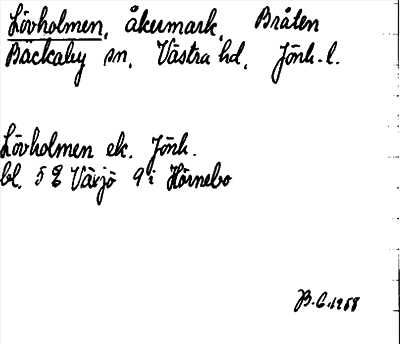 Lövholmen, åkermark, Bråten
Bäckaby sn, Västra hd, Jönk. l.
Lövholmen ek. Jönk.
bl. 5 E Växjö 9 i Hörnebo
B.G. 1958